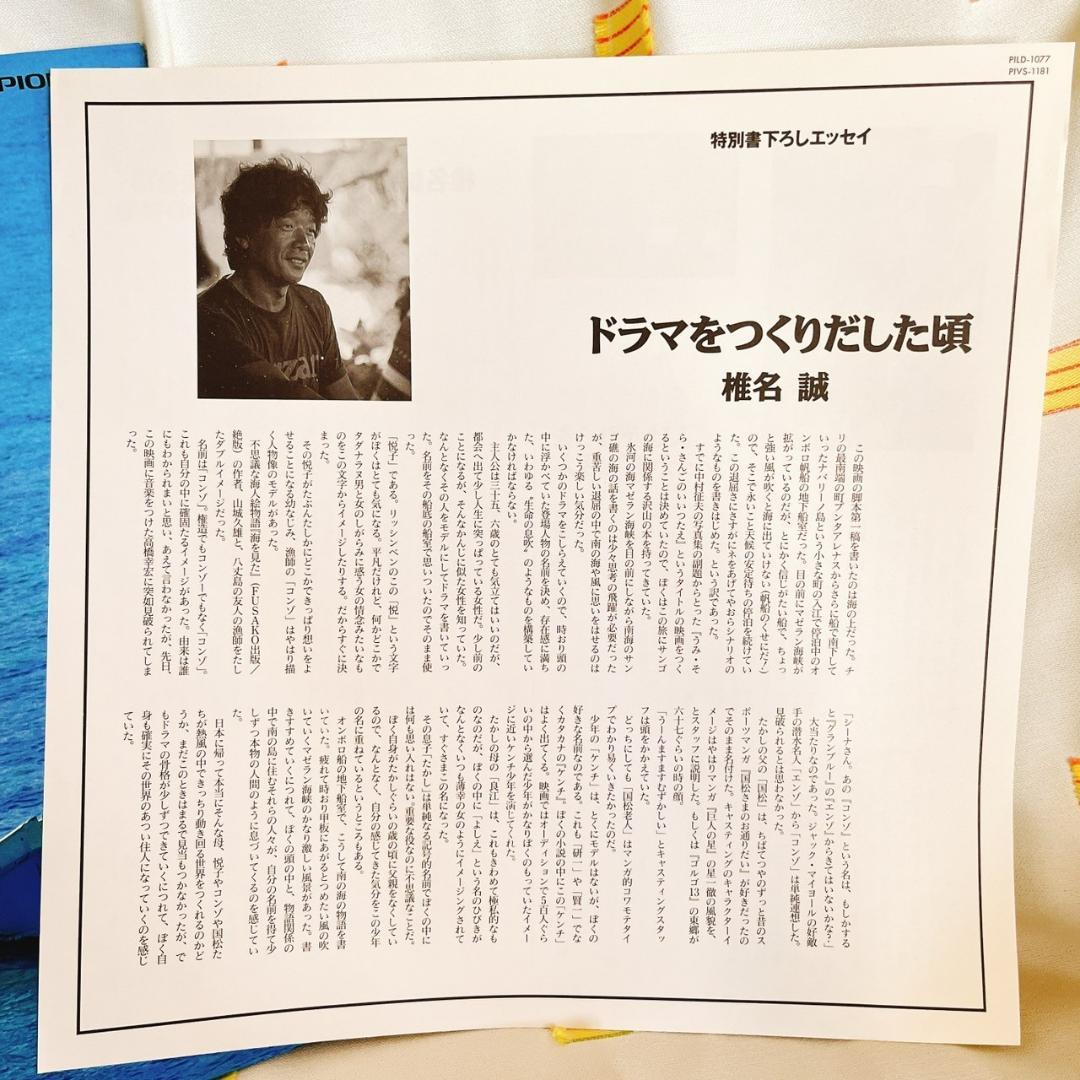 PIO
PILD-1077
PIVS-1181
特別書下ろしエッセイ
ドラマをつくりだした頃
椎名 誠
この映画の脚本第一稿を書いたのは海の上だった。チ
リの最南端の町プンタアレナスからさらに船で南下して
いったナバリーノ島という小さな町の入江で停泊中のオ
ンボロ帆船の地下船室だった。目の前にマゼラン海峡が
拡がっているのだが、とにかく信じがたい船で、ちょっ
と強い風が吹くと海に出ていけない(帆船のくせにだ!)
ので、そこで永いこと天候の安定待ちの停泊を続けてい
た。この退屈さにさすがにネをあげてやおらシナリオの
ようなものを書きはじめた。という訳であった。
すでに中村征夫の写真集の副題からとった『うみ・そ
ら・さんごのいいつたえ』というタイトルの映画をつく
るということは決めていたので、ぼくはこの旅にサンゴ
の海に関係する沢山の本を持ってきていた。
氷河の海マゼラン海峡を目の前にしながら南海のサン
ゴ礁の海の話を書くのは少々思考の飛躍が必要だった
が、重苦しい退屈の中で南の海や風に思いをはせるのは
けっこう楽しい気分だった。
いくつかのドラマをこしらえていくので、時おり頭の
中に浮かべていた登場人物の名前を決め、存在感に満ち
た、いわゆる〝生命の息吹〟のようなものを構築してい
かなければならない。
主人公は三十五、六歳のとても気立てはいいのだが、
都会へ出て少し人生に突っぱっている女性だ。少し前の
ことになるが、そんなかんじに似た女性を知っていた。
なんとなくその人をモデルにしてドラマを書いていっ
た。名前をその船底の船室で思いついたのでそのまま使
った。
「悦子」である。リッシンベンのこの「悦」という文字
がぼくはとても気になる。平凡だけれど、何かどこかで
タダナラヌ男と女のしがらみに惑う女の情念みたいなも
のをこの文字からイメージしたりする。だからすぐに決
まった。
その悦子がたぶんたしかにどこかできっぱり想いをよ
せることになる幼なじみ、漁師の「コンゾ」はやはり描
く人物像のモデルがあった。
不思議な海人絵物語『海を見た』(FUSAKO出版/
絶版)の作者、山城久雄と、八丈島の友人の漁師をたし
たダブルイメージだった。
名前は「コンゾ」。権造でもコンゾーでもなく「コンゾ」。
これも自分の中に確固たるイメージがあった。由来は誰
にもわかられまいと思い、あえて言わなかったが、先日、
この映画に音楽をつけた高橋幸宏に突如見破られてしま
った。
「シーナさん。あの『コンゾ』という名は、もしかする
と『グランブルー』の『エンゾ』からきてはいないかな?」
大当たりなのであった。ジャック・マイヨールの好敵
手の潜水名人「エンゾ」から「コンゾ」は単純連想した。
見破られるとは思わなかった。
たかしの父の「国松」は、ちばてつやのずっと昔のス
ポーツマンガ『国松さまのお通りだい』が好きだったの
でそのまま名付けた。キャスティングのキャラクターイ
メージはやはりマンガ『巨人の星』の星一徹の風貌を、
とスタッフに説明した。もしくは『ゴルゴ13』の東郷が
六十七ぐらいの時の顔。
「うーんますますむずかしい」とキャスティングスタッ
フは頭をかかえていた。
どっちにしても「国松老人」はマンガ的コワモテタイ
プでわかり易くいきたかったのだ。
少年の「ケンチ」は、とくにモデルはないが、ぼくの
好きな名前なのである。これも「研一」や「賢一」でな
くカタカナの『ケンチ』。ぼくの小説の中にこの「ケンチ」
はよく出てくる。映画ではオーディションで5百人ぐら
いの中から選んだ少年がかなりぼくのもっていたイメー
ジに近いケンチ少年を演じてくれた。
たかしの母の「良江」は、これもきわめて極私的なも
のなのだが、ぼくの中に「よしえ」という名のひびきが
なんとなくいつも薄幸の女のようにイメージングされて
いて、すぐさまこの名になった。
その息子「たかし」は単純なる記号的名前でぼくの中に
は何も思い入れはない。重要な役なのに不思議なことだ。
ぼく自身がたかしぐらいの歳の頃に父親をなくしてい
るので、なんとなく、自分の感じてきた気分をこの少年
の名に重ねているというところもある。
オンボロ船の地下船室で、こうして南の海の物語を書
いていた。疲れて時おり甲板にあがるとつめたい風の吹
いていくマゼラン海峡のかなり激しい風景があった。書
きすすめていくにつれて、ぼくの頭の中と、物語関係の
中で南の島に住むそれらの人々が、自分の名前を得て少
しずつ本物の人間のように息づいてくるのを感じてい
た。
日本に帰って本当にそんな母、悦子やコンゾや国松た
ちが熱風の中できっちり動き回る世界をつくれるのかど
うか、まだこのときはまるで見当もつかなかったが、で
もドラマの骨格が少しずつできていくにつれて、ぼく自
身も確実にその世界のあつい住人になっていくのを感じ
ていた。